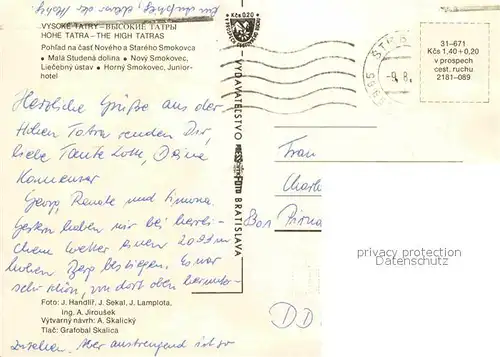 VYSOKÉ TATRY – ВЫСОКИЕ ТАТРЫ
HOHE TATRA – THE HIGH TATRAS
Pohľad na časť Nového a Starého Smokovca
• Malá Studená dolina • Nový Smokovec,
Liečebný ústav • Horný Smokovec, Junior-
hotel
Herzliche Grüße aus der
Hohen Tatra senden Dir,
liebe Tante Lotte, Deine
Georg, Renate und Simona.
Gestern haben wir bei herrli-
chem Wetter einen 2033 m
hohen Berg bestiegen. Es war
sehr schön, von dort oben herunter-
Foto: J. Handlíř, J. Sekal, J. Lamplota,
ing. A. Jiroušek
Výtvarný návrh: A. Skalický
Tlač: Grafobal Skalica
Aber anstrengend ist so
Kčs 0,20
VYDAVATEĽSTVO PRESSFOTO BRATISLAVA
31–671
Kčs 1,40 + 0,20
v prospech
cest. ruchu
2181–089
Frau
8301 Pirna
DD
privacy protection
Datenschutz